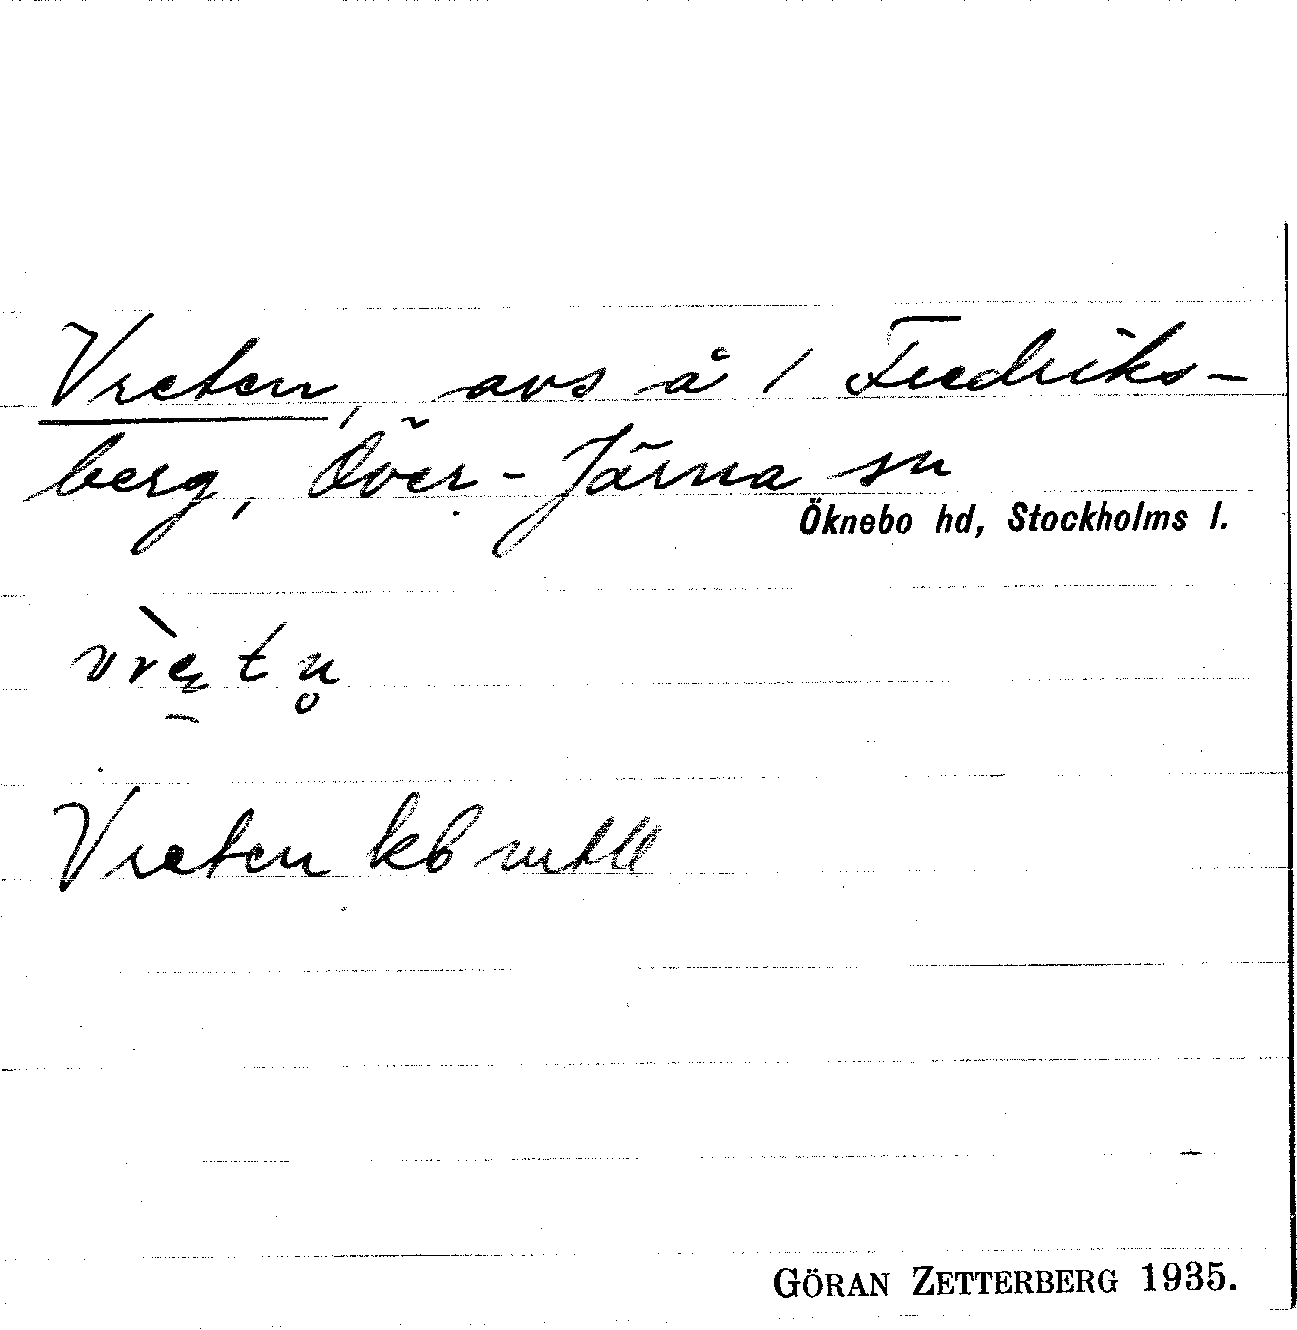 Vreten, avs å / Fredriks-
berg, Över-Järna sn
Öknebo hd, Stockholms l.
vrètn̥
Vreten kb
GÖRAN ZETTERBERG 1935.